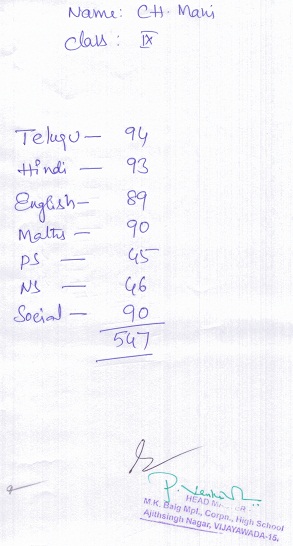 Name: CH. Mani
Class: IX
Telugu — 94
Hindi — 93
English — 89
Maths — 90
PS — 45
NS — 46
Social — 90
547
HEAD
M.K. Baig Mpl., Corpn., High School
Ajithsingh Nagar, VIJAYAWADA-15.